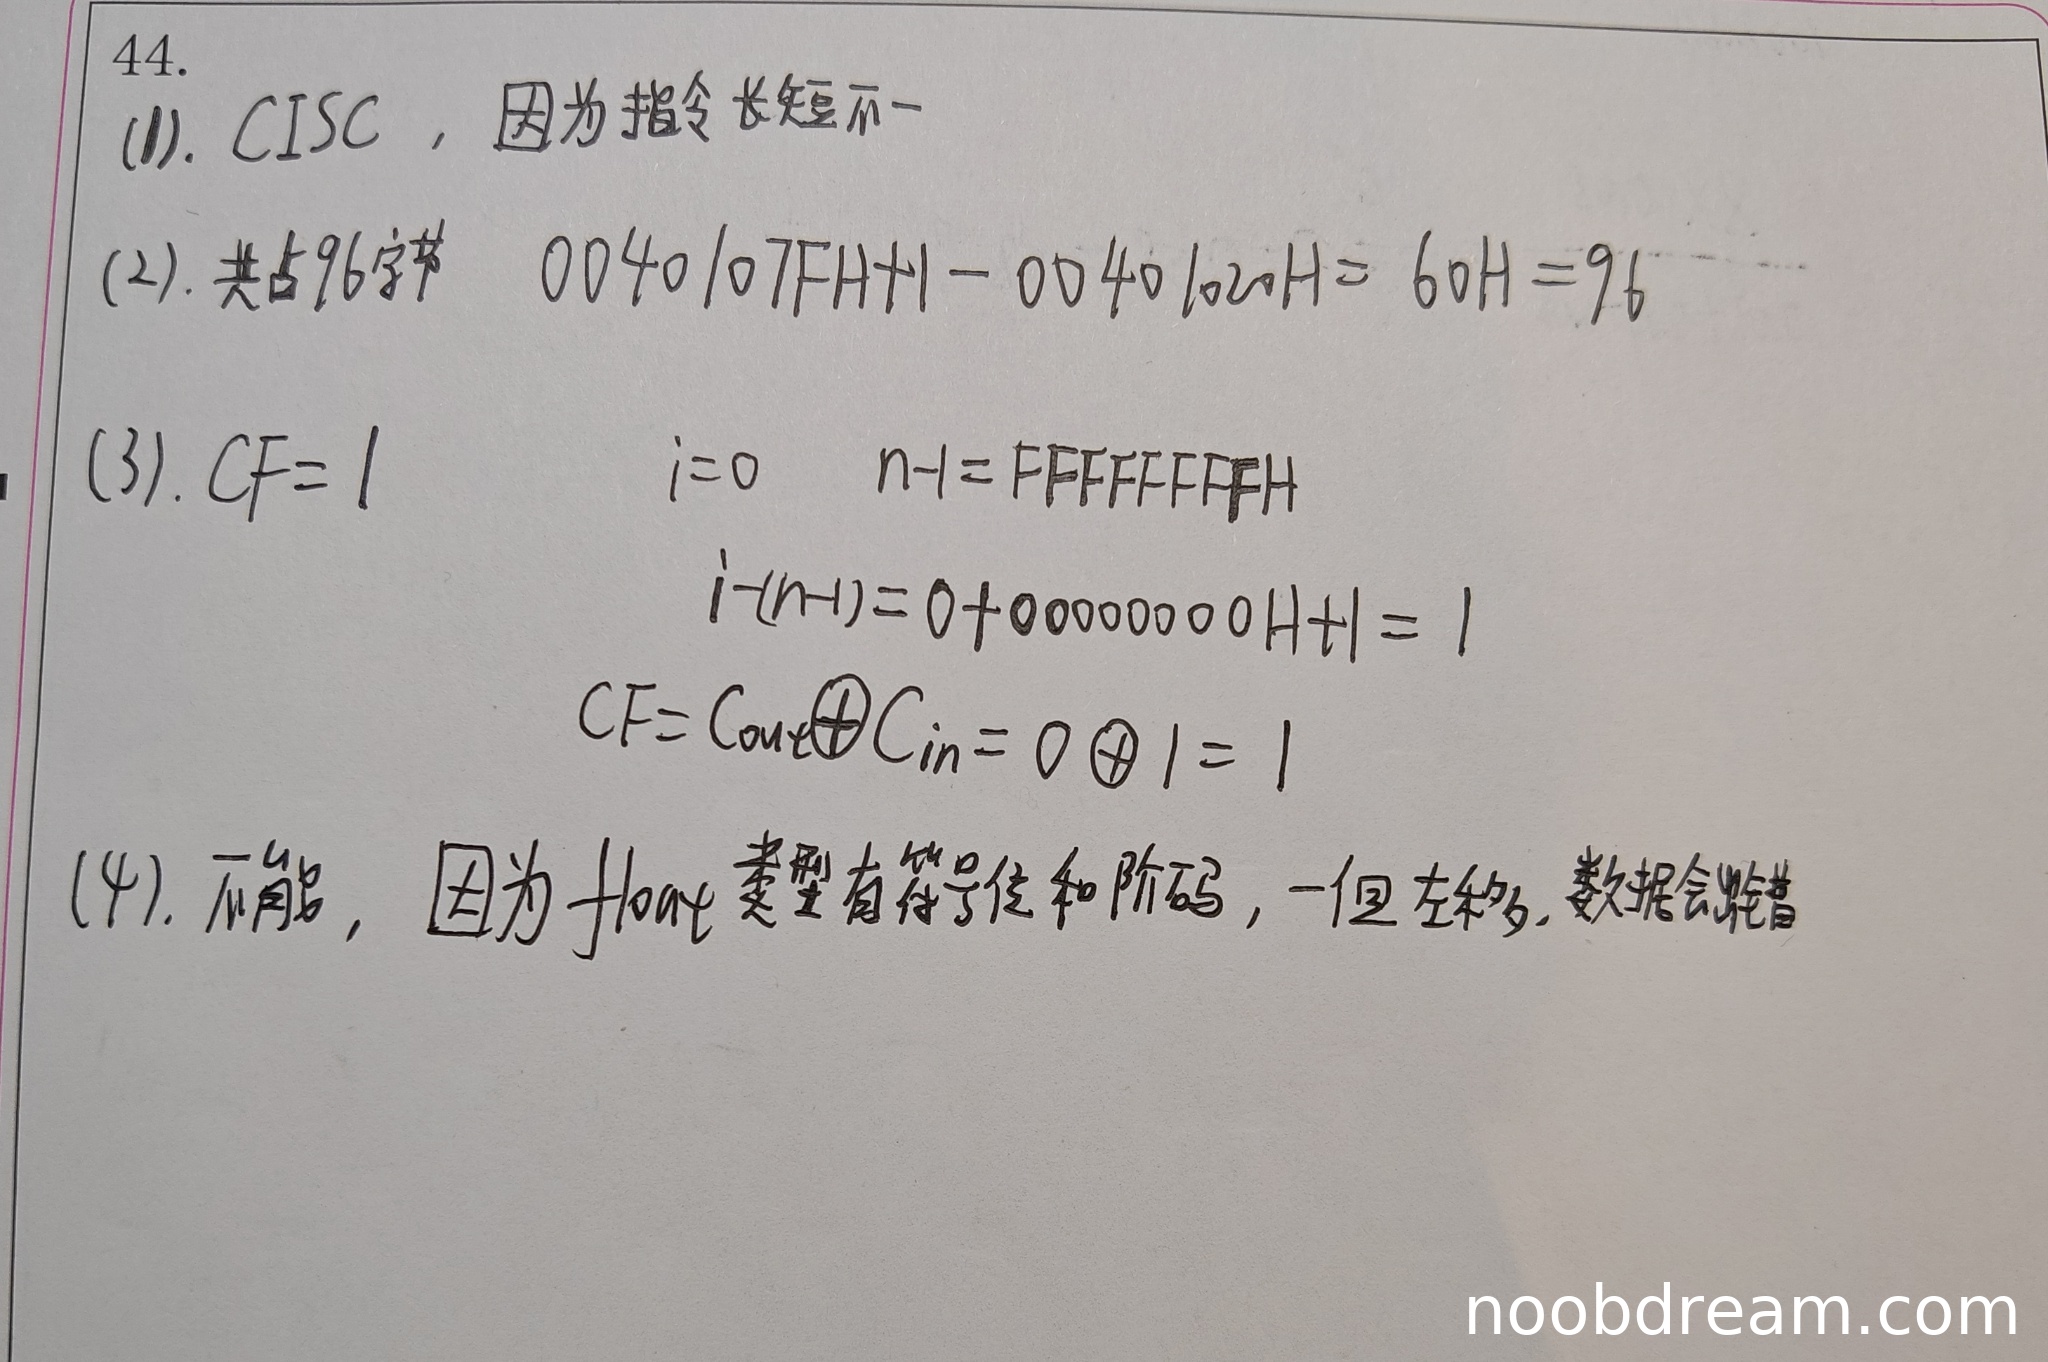 44.
(1). CISC ，因为指令长短不一
(2). 共占96字节 0040107FH+1-00401020H= 60H=96
(3). CF=1 i=0 n-1=FFFFFFFFH
i-(n-1)=0+00000000H+1=1
CF=Cout⊕Cin=0⊕1=1
(4). 不能，因为float类型有符号位和阶码，一但左移，数据会出错
noobdream.com